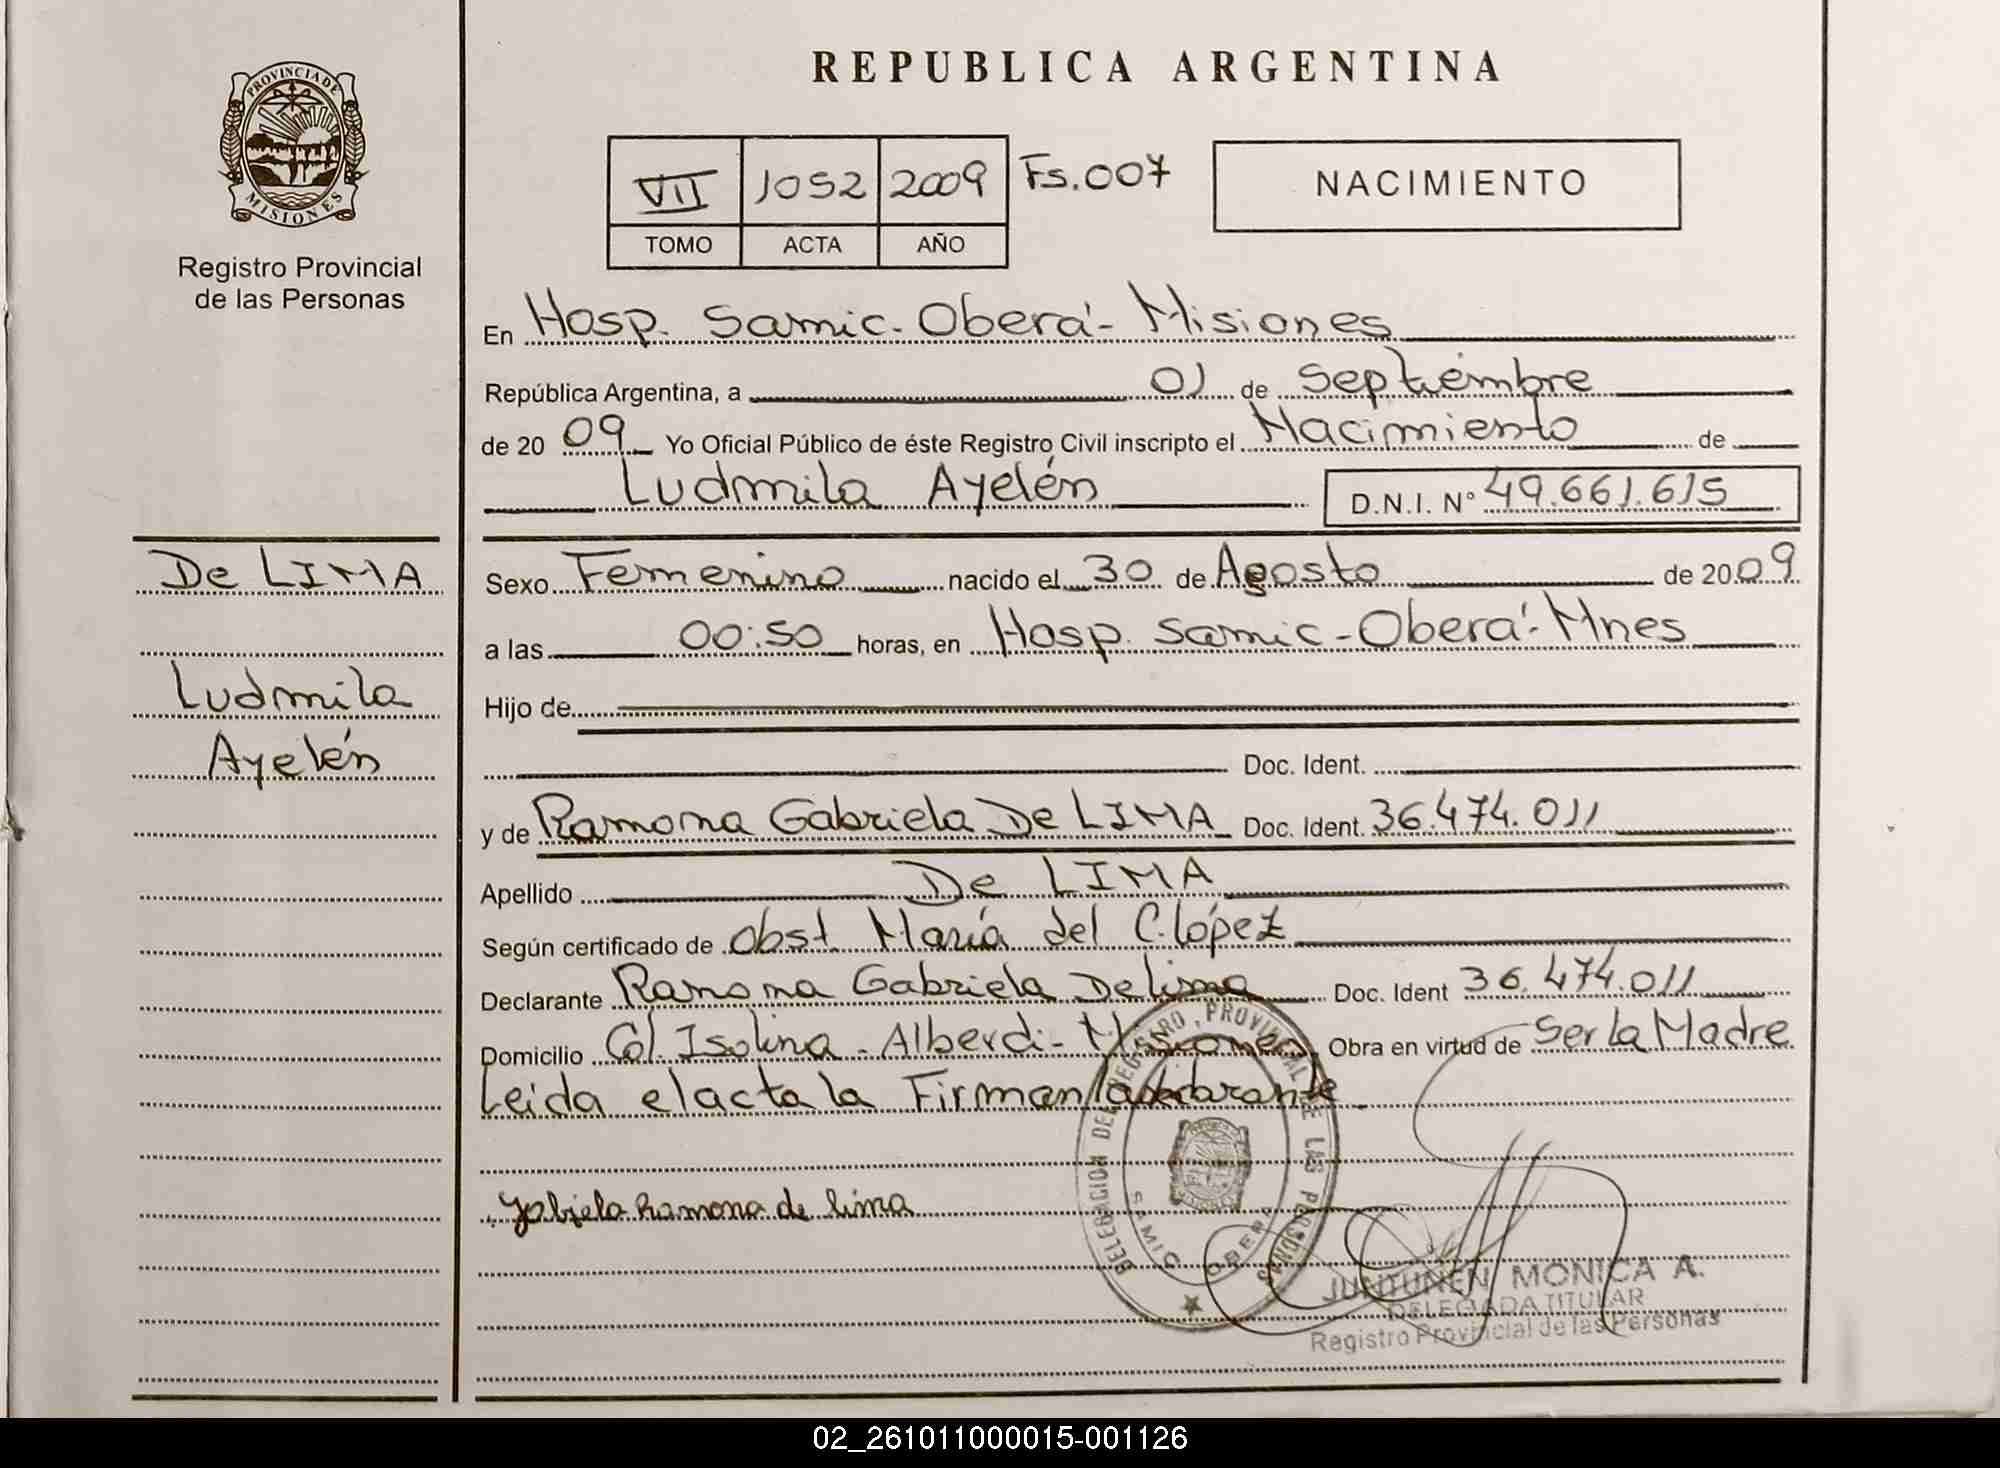 PROVINCIA DE
MISIONES
Registro Provincial
de las Personas
De LIMA
Ludmila
Ayelén
REPUBLICA ARGENTINA
VII 1052 2009 Fs.007
TOMO ACTA AÑO
NACIMIENTO
En Hosp. Samic - Oberá - Misiones
República Argentina, a 01 de Septiembre
de 20 09 Yo Oficial Público de éste Registro Civil inscripto el Nacimiento de
Ludmila Ayelén D.N.I. Nº 49.661.615
Sexo Femenino nacido el 30 de Agosto de 20 09
a las 00:50 horas, en Hosp. Samic - Oberá - Mnes
Hijo de
Doc. Ident.
y de Ramona Gabriela De LIMA Doc. Ident. 36.474.011
Apellido De LIMA
Según certificado de Obst María del C. López
Declarante Ramona Gabriela De lima Doc. Ident 36.474.011
Domicilio Col. Isolina - Alberdi - Misiones Obra en virtud de Ser la Madre
Leida el acta la Firman la declarante
DELEGACION DEL REGISTRO PROVINCIAL DE LAS PERSONAS
SAMIC OBERA
Gabriela Ramona de lima
JUNTUNEN MONICA A.
DELEGADA TITULAR
Registro Provincial de las Personas
02_261011000015-001126